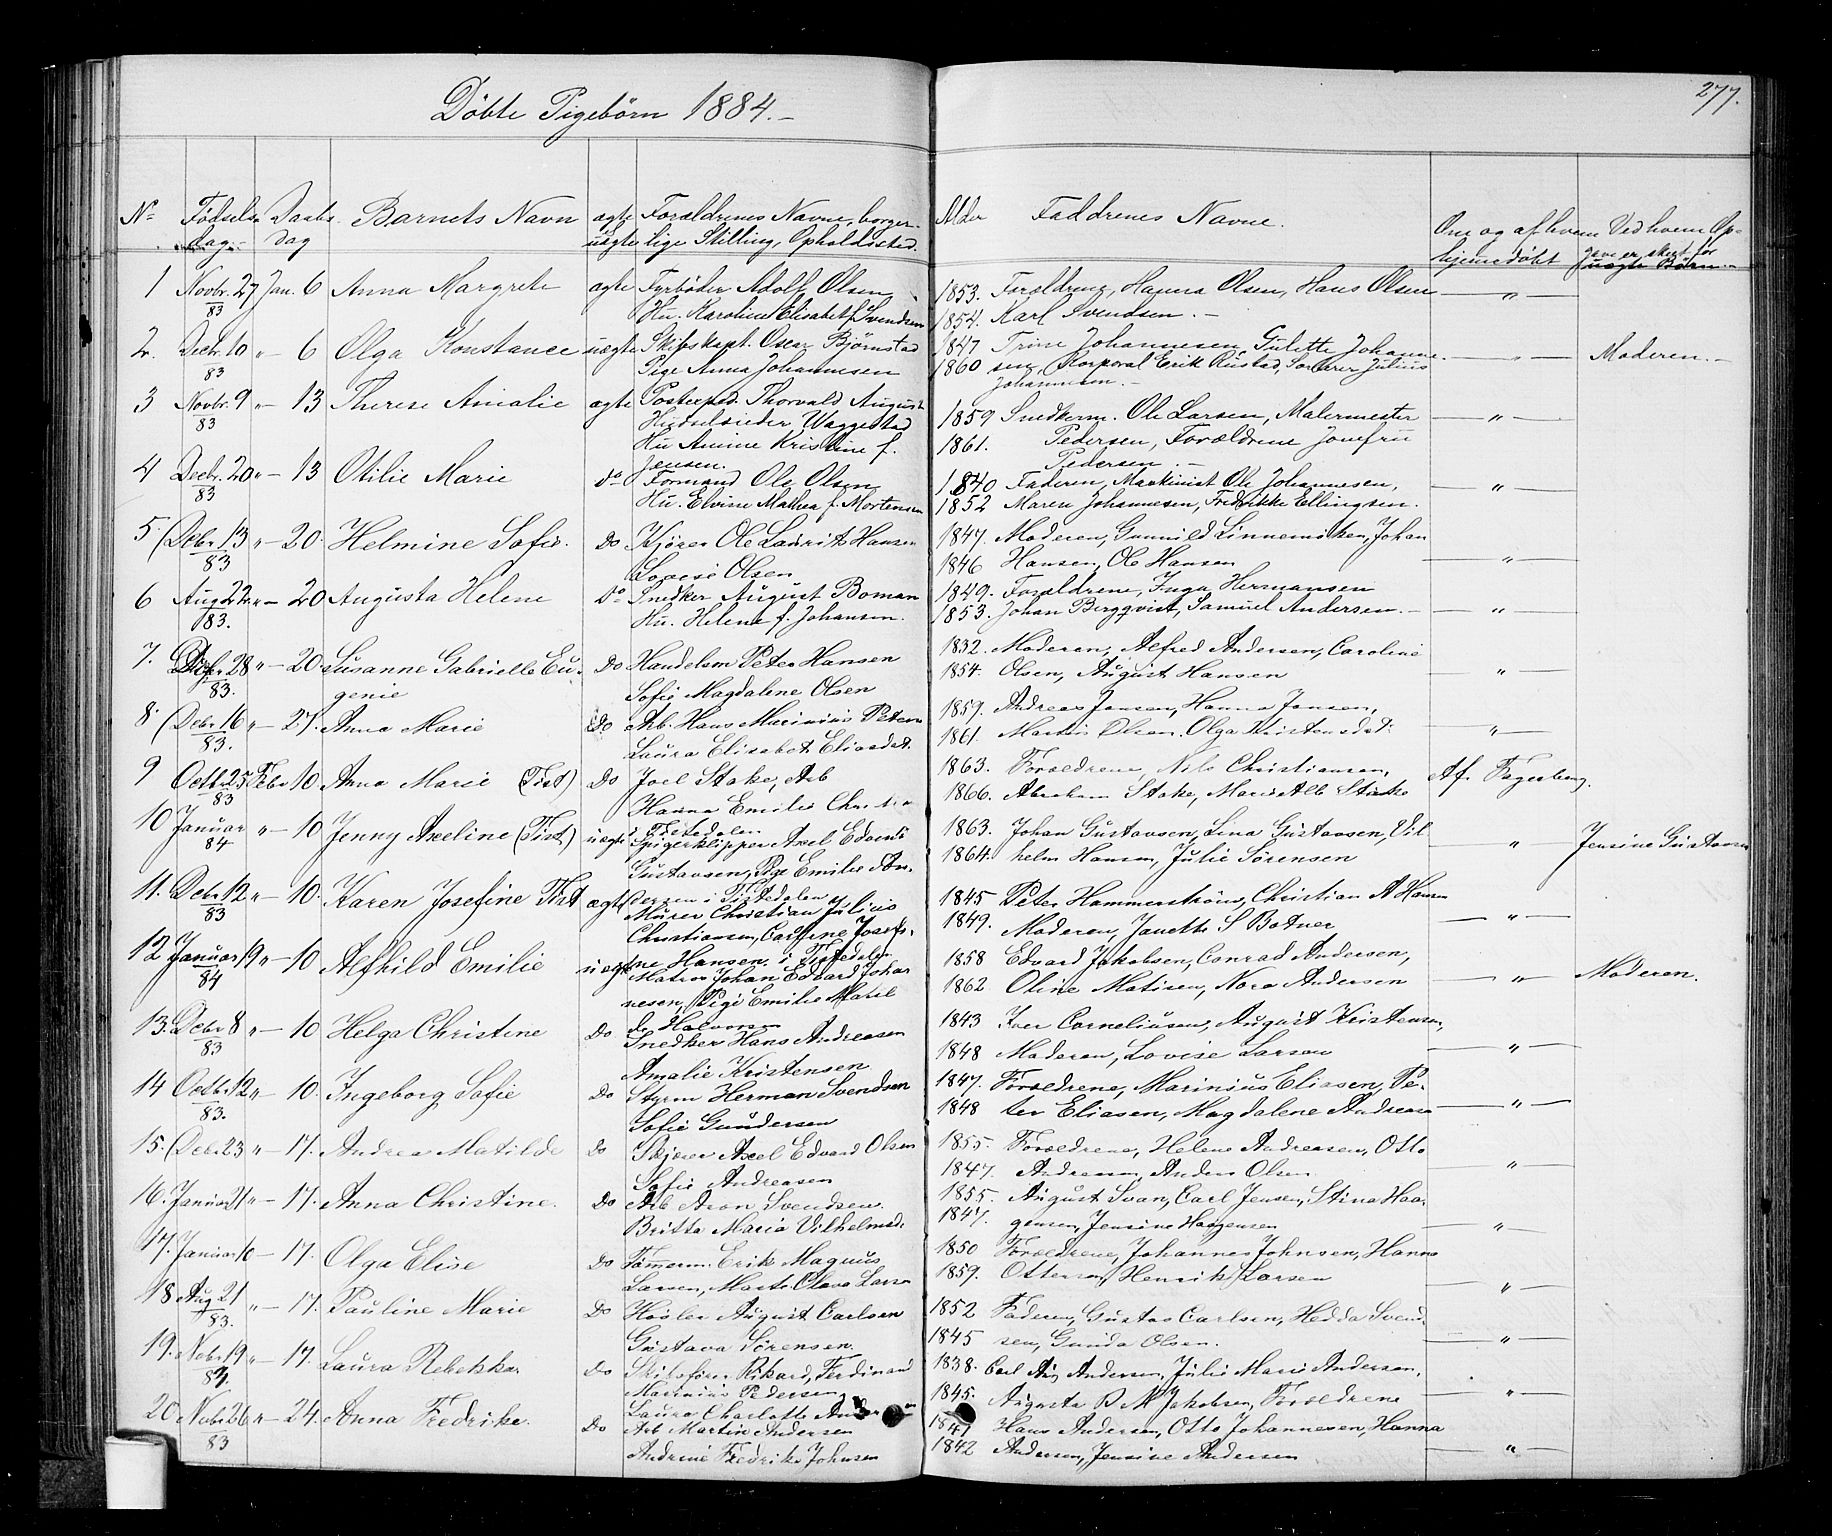 Döbte Pigebörn 1884.-
277.
No Fødsels dag Daabs dag Barnets Navn ægte uægte Forældrenes Navne, borgerlige Stilling, Opholdssted. Alder Faddrenes Navne. Om og af hvem hjemmedøbt Ved hvem Opgave er skeet for uægte Børn
1 Novbr. 27 83 Jan. 6 Anna Margrete ægte Fyrbøder Adolf Olsen 1853. Forældrene, Hanna Olsen, Hans Olsen — " —
Hu. Karoline Elisabet f. Svendsen 1854. Karl Svendsen. -
2. Decbr. 10 83 " - 6 Olga Konstance uægte Skibskapt. Oscar Bjørnstad 1847 Trine Johannesen, Gulette Johanne- — " — Moderen. -
Pige Anna Johannesen 1860 sen, Korporal Erik Rustad, Julius
Johannesen. -
3 Novbr. 9 83 " - 13 Therese Amalie ægte Postexped. Thorvald August 1859 Snedkerm. Ole Larsen, Malermester — " —
Waggestad
Hu Amine Kristine f. 1861. Pedersen, Forældrene Jomfru
Jensen. Pedersen. -
4 Decbr. 20 83 " - 13 Otilie Marie do Formand Ole Olsen 1840 Faderen, Maskinist Ole Johannesen, — " —
Hu. Elvine Mathea f. Mortensen 1852 Maren Johannesen, Fredrikke Ellingsen.
5 Debr 13 83 " - 20. Helmine Sofie. Do Kjører Ole Lauritz Hansen 1847. Moderen, Gunnild Linnemiken, Johan
Lovise Olsen 1846 Hansen, Ole Hansen — " —
6 Aug 22 83. " - 20 Augusta Helene Do Snedker August Boman 1849. Forældrene, Inga Hermansen
Hu. Helene f. Johansen. 1853. Johan Bergqvist, Samuel Andersen. - — " —
7. 28 83. " - 20 Susanne Gabrielle Eu- Do Handelsm Peter Hansen 1832. Moderen, Alfred Andersen, Caroline
genie Sofie Magdalene Olsen 1854. Olsen, August Hansen — " —
8 Debr 16 83. " - 27. Anna Marie Do Arb. Hans Marinius Petersen 1859. Andreas Jansen, Hanna Jansen,
Laura Elisabet Eliasdat. 1861. Martin Olsen. Olga Kristensdat. — " —
9 Octb. 25 83 Febr 10 Anna Marie (Tist) Do Joel Stake, Arb 1863. Forældrene, Nils Christiansen, Af. Fagerberg.
Hanna Emilie 1866. Abraham Stake, Marie Alb Stake
i Tistedalen
10 Januar 84 " - 10 Jenny Axeline (Tist) uægte Spigerklipper Axel Edvard 1863. Johan Gustavsen, Lina Gustavsen, Vil- — " — Jensine Gustavsen
Gustavsen, Pige Emilie An- 1864. helm Hansen, Julie Sørensen
dersen i Tistedalen
11. Debr 12 83 " - 10. Karen Josefine Tist ægte Murer Christian Julius 1845 Peter Hammerstrøm, Christian A Hansen — " —
Christiansen, Josefi- 1849. Moderen, Janette S Botner
ne Hansen. i Tistedalen
12 Januar 19 84 " - 10 Alfhild Emilie uægte Matros Johan Edvard Johan 1858 Edvard Jakobsen, Conrad Andersen,
nesen, Pige Emilie Matil 1862 Oline Matisen, Nora Andersen — " — Moderen.
de Halvorsen
13. Debr 8 83 " - 10 Helga Christine Do Snedker Hans Andreasen 1843 Iver Corneliusen, August Kristensen,
Amalie Kristensen 1848 Moderen, Lovise Larsen — " —
14 Octbr. 12 83. " - 10. Ingeborg Sofie Do Styrm Herman Svendsen 1847. Forældrene, Marinius Eliasen, Pe-
Sofie Gundersen 1848 ter Eliasen, Magdalene Andreasen — " —
15. Debr 23 " - 17. Andrea Matilde Do Skjærer Axel Edvard Olsen 1855. Forældrene, Helene Andreasen, Otto
Sofie Andreasen 1847. Andreasen, Anders Olsen — " —
16. Januar 21 " - 17. Anna Christine. Do Arb Aron Svendsen. 1855. August Svan, Carl Jensen, Stina Haa-
Britta Maria Vilhelmsd. 1847. gensen, Jensine Haagensen — " —
17. Januar 10 " - 17. Olga Elise Do Tømerm. Erik Magnus 1850 Forældrene, Johannes Johnsen, Hanna
Larsen, Marte Olava Larsen 1859. Ottersen, Henrik Larsen — " —
18 Aug 21 83. " - 17. Pauline Marie Do August Carlsen 1852 Faderen, Gustav Carlsen, Hedda Svend
Gustava Sørensen. 1845 sen, Gunda Olsen. — " —
19. Nobr 19 " - 17. Laura Rebekka. Do Skibsfører Rikard, Ferdinand 1838. Carl Aug Andersen, Julie Marie Andersen,
Marinius Pedersen 1845. Augusta B M Jakobsen, Forældrene — " —
Laura Charlotte Andersen
20 Nobr 26 83 " - 24. Anna Fredrike. Do Arb Martin Andersen 1847 Hans Andersen, Otto Johannesen, Hanna
Andrine Fredrike Johnsen 1842 Andersen, Jensine Andersen — " —